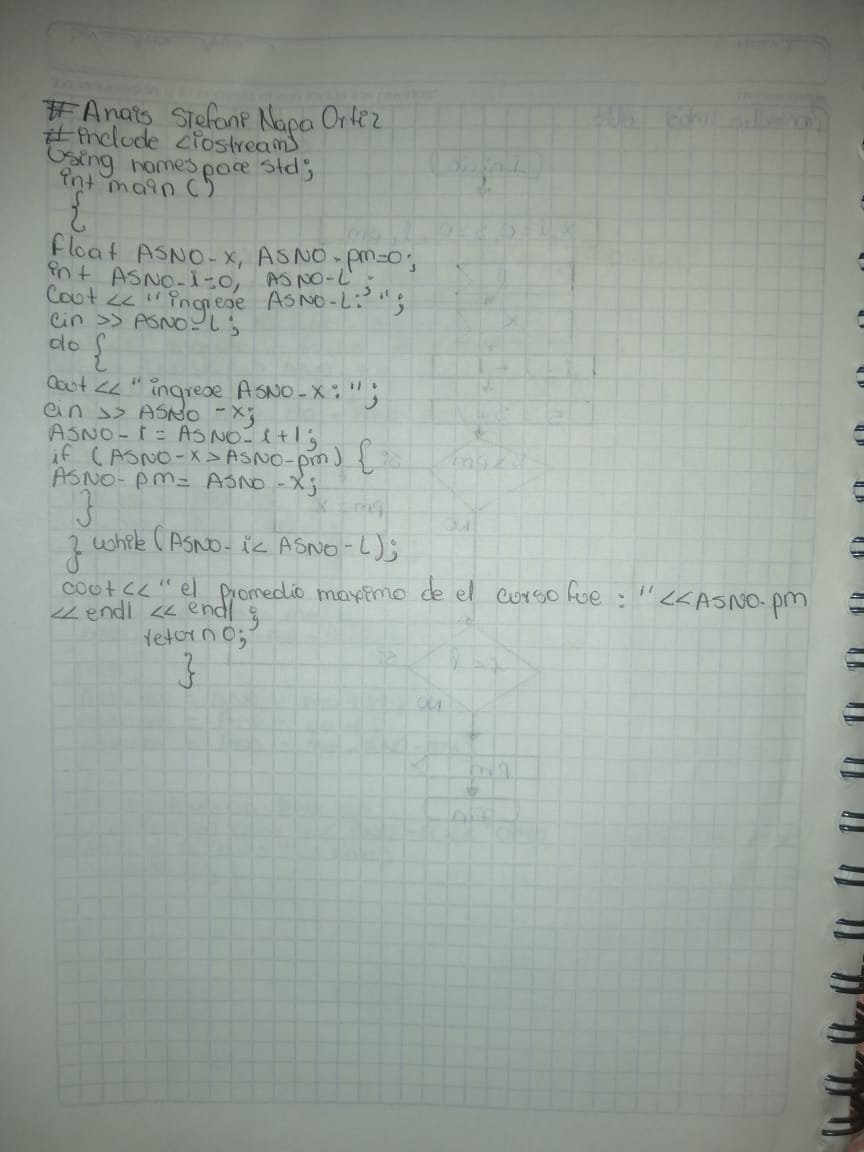 # Anais Stefani Napa Ortiz
# include <iostream>
Using namespace std;
int main ( )
{
float ASNO-x, ASNO-pm=0;
int ASNO-i=0, ASNO-L;
Cout << "ingrese ASNO-L: ";
cin >> ASNO-L;
do {
Cout << "ingrese ASNO-x: ";
cin >> ASNO-x;
ASNO-i = ASNO-i+1;
if (ASNO-x > ASNO-pm) {
ASNO-pm = ASNO-x;
}
} while (ASNO-i < ASNO-L);
cout << " el promedio maximo de el curso fue : " << ASNO-pm
<< endl << endl ;
return 0;
}